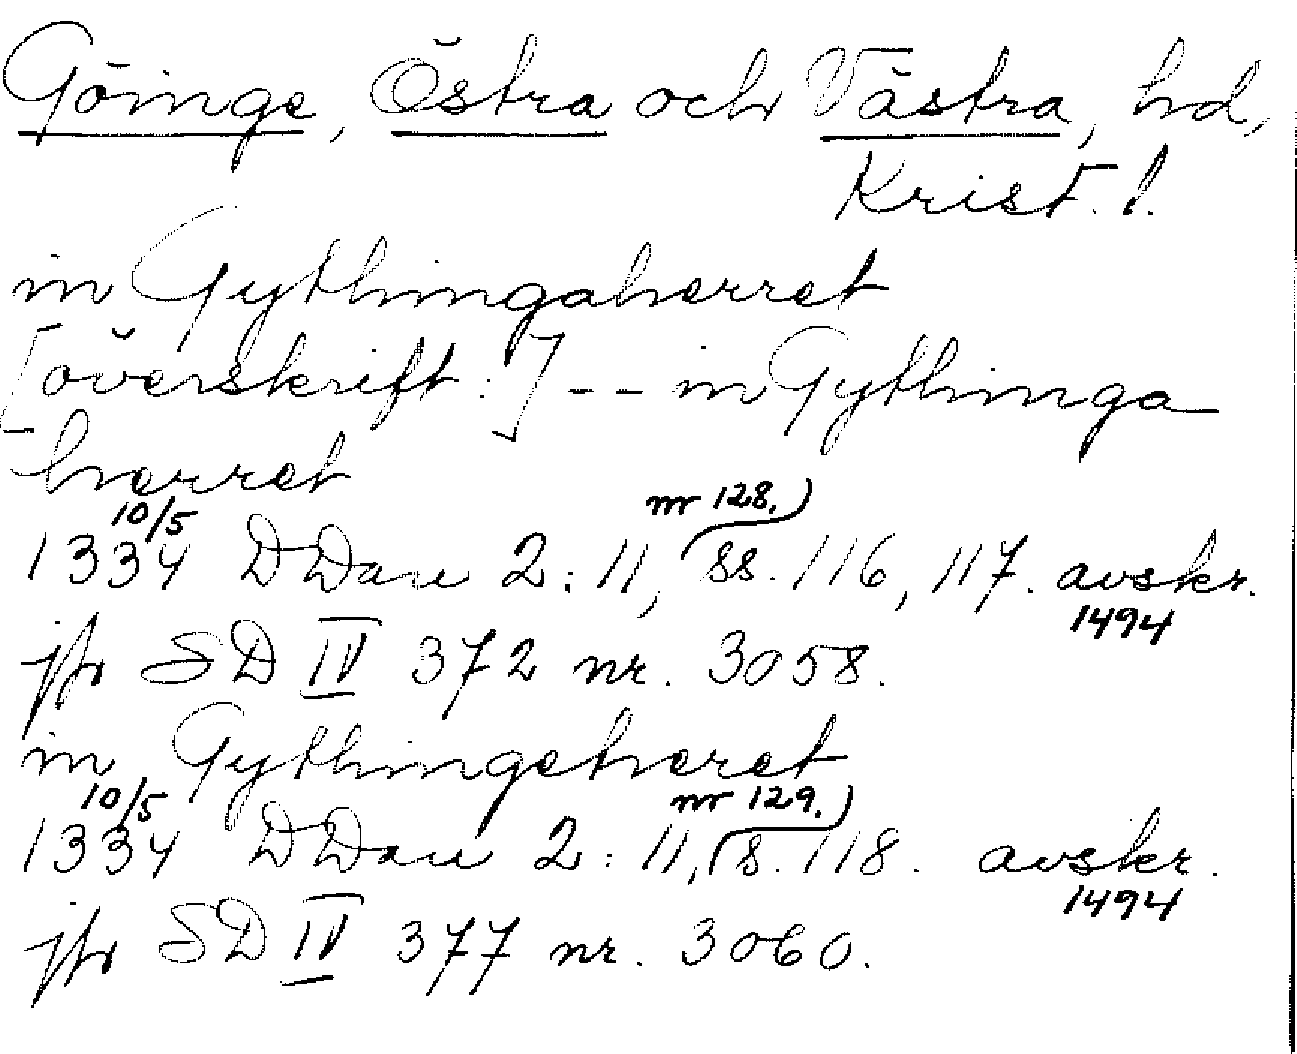 Göinge, Östra och Västra, hd,
Krist. l.
in Gythingaherret
[överskrift:] -- in Gythinga
herret
10/5 nr 128.
1334 DDan 2: 11, ss. 116, 117. avskr.
1494
jfr SD IV 372 nr. 3058.
in Gythingeheret
10/5 nr 129.
1334 DDan 2: 11, s. 118. avskr.
1494
jfr SD IV 377 nr. 3060.